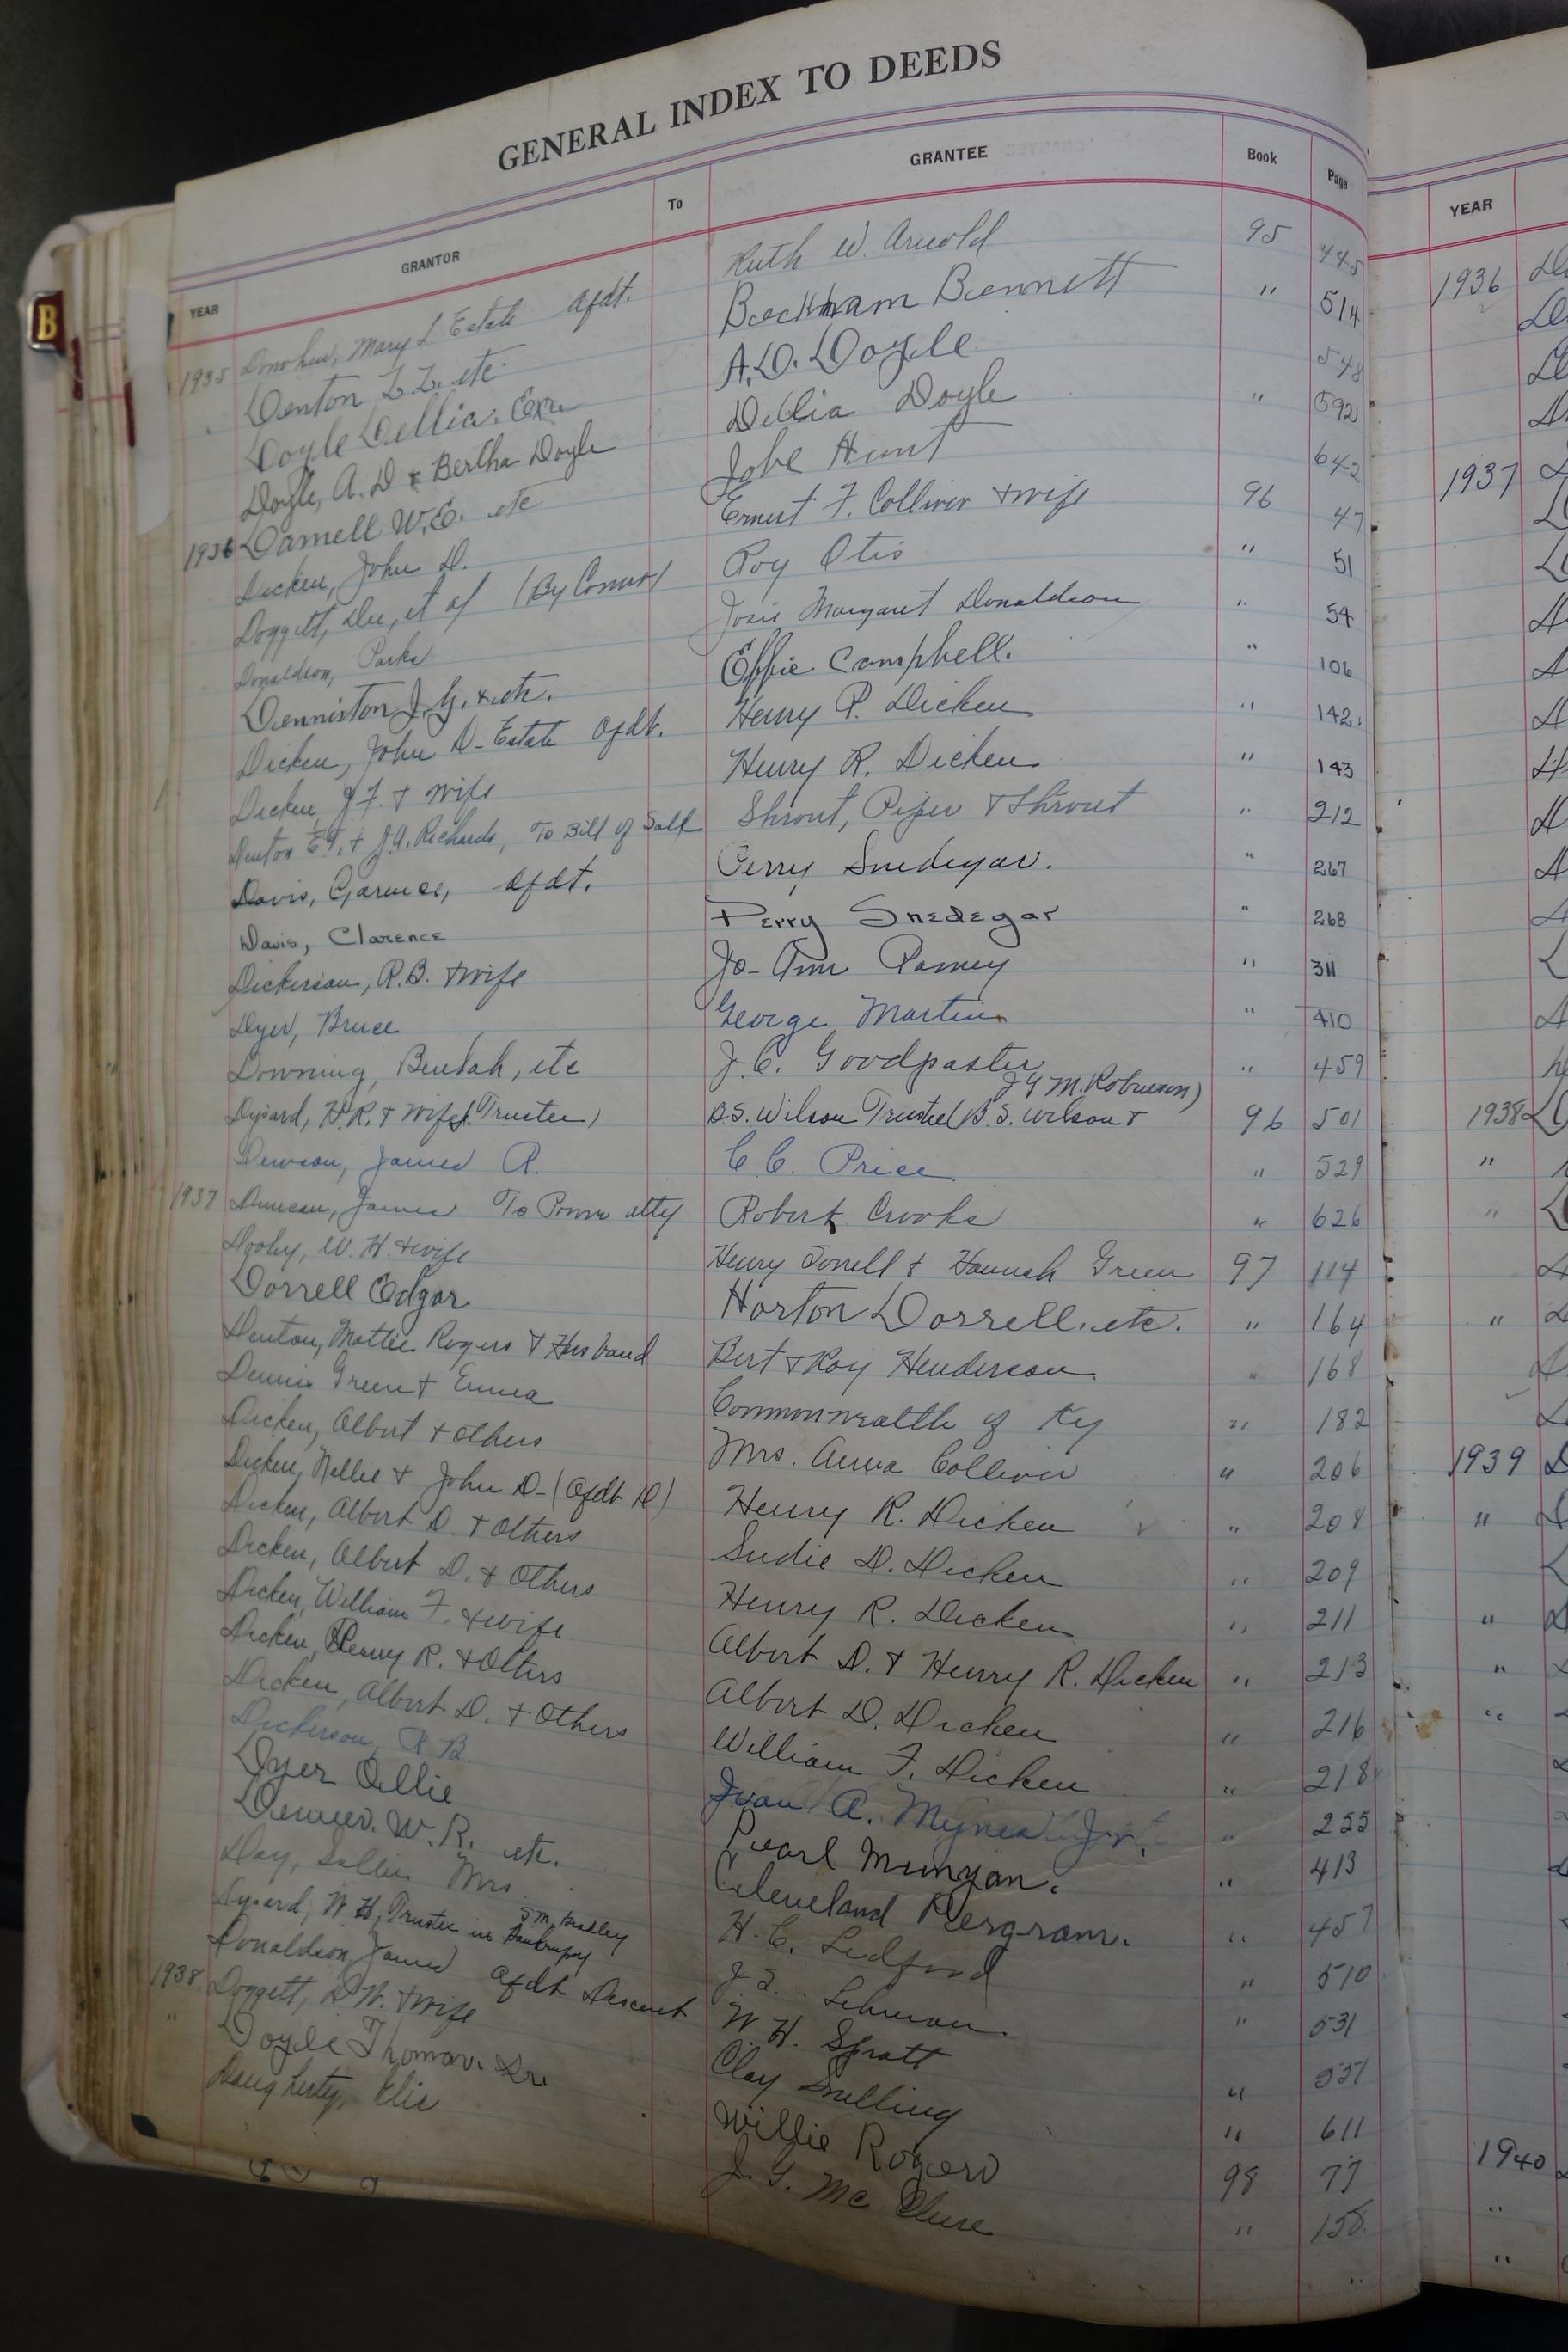 GENERAL INDEX TO DEEDS
YEAR GRANTOR To GRANTEE Book Page
1935 Donohew, Mary L Estate afdt. Ruth W. Arnold 95 445
Denton L.L. etc. Beckham Bennett " 514
Doyle Dellia. Exe A.D. Doyle 548
Doyle, A.D & Bertha Doyle Dellia Doyle " 592
1936 Darnell W.E. etc Jobe Hunt 642
Dicken, John D. Ernest F. Colliver & wife 96 47
Doggett, Dee, et al (By Comr) Roy Otis " 51
Donaldson, Parks Josie Margaret Donaldson " 54
Denniston J.G. & etc. Effie Campbell. " 106
Dicken, John D- Estate afdt. Henry R. Dicken " 142
Dicken J.F. & wife Henry R. Dicken " 143
Denton E.T. & J.A. Richards, To Bill of Sale Shrout, Piper & Shrout " 212
Davis, Clarence, afdt. Perry Snedegar. " 267
Davis, Clarence Perry Snedegar " 268
Dickerson, R.B. & wife Jo-Ann Ramey " 311
Dyer, Bruce George Martin " 410
Downing, Beulah, etc J.C. Goodpaster " 459
Dysard, H.R. & wife (Trustee) B.S. Wilson Trustee (B.S. Wilson & J.G M. Robinson) 96 501
Dawson, James R. C.C. Price " 529
1937 Duncan, James To Power atty Robert Crooks " 626
Dooley, W.H. & wife Henry Sorrell & Hannah Green 97 114
Dorrell Edgar Horton Dorrell. etc. " 164
Denton, Mattie Rogers & Husband Bert & Roy Henderson " 168
Dennis Green & Emma Commonwealth of Ky " 182
Dicken, Albert & others Mrs. Anna Colliver " 206
Dicken, Nellie & John D- (afdt D) Henry R. Dicken " 208
Dicken, Albert D. & Others Sudie D. Dicken " 209
Dicken, Albert D. & Others Henry R. Dicken " 211
Dicken, William F. & wife Albert D. & Henry R. Dicken " 213
Dicken, Henry R. & Others Albert D. Dicken " 216
Dicken, Albert D. & Others William F. Dicken " 218
Dickerson, R.B. A. Mynes Jr. " 255
Dyer Ollie Pearl Mungan. " 413
W.R. etc. Cleveland Pergram. " 457
Day, Sallie Mrs. H.C. Ledford " 510
Dysard, W.H, Trustee in Bankrupcy S.M. Bradley J.S. Lehman. " 531
Donaldson, James afdt Descent W.H. Spratt 537
1938 Doggett, D.W. & wife Clay Snelling " 611
" Doyle Thomas. Dr. Willie Rogers 98 77
Daugherty, Elic J.G. Mc Clure " 158
YEAR
1936
1937
1938
"
"
"
1939
"
"
"
"
1940
"
"
B